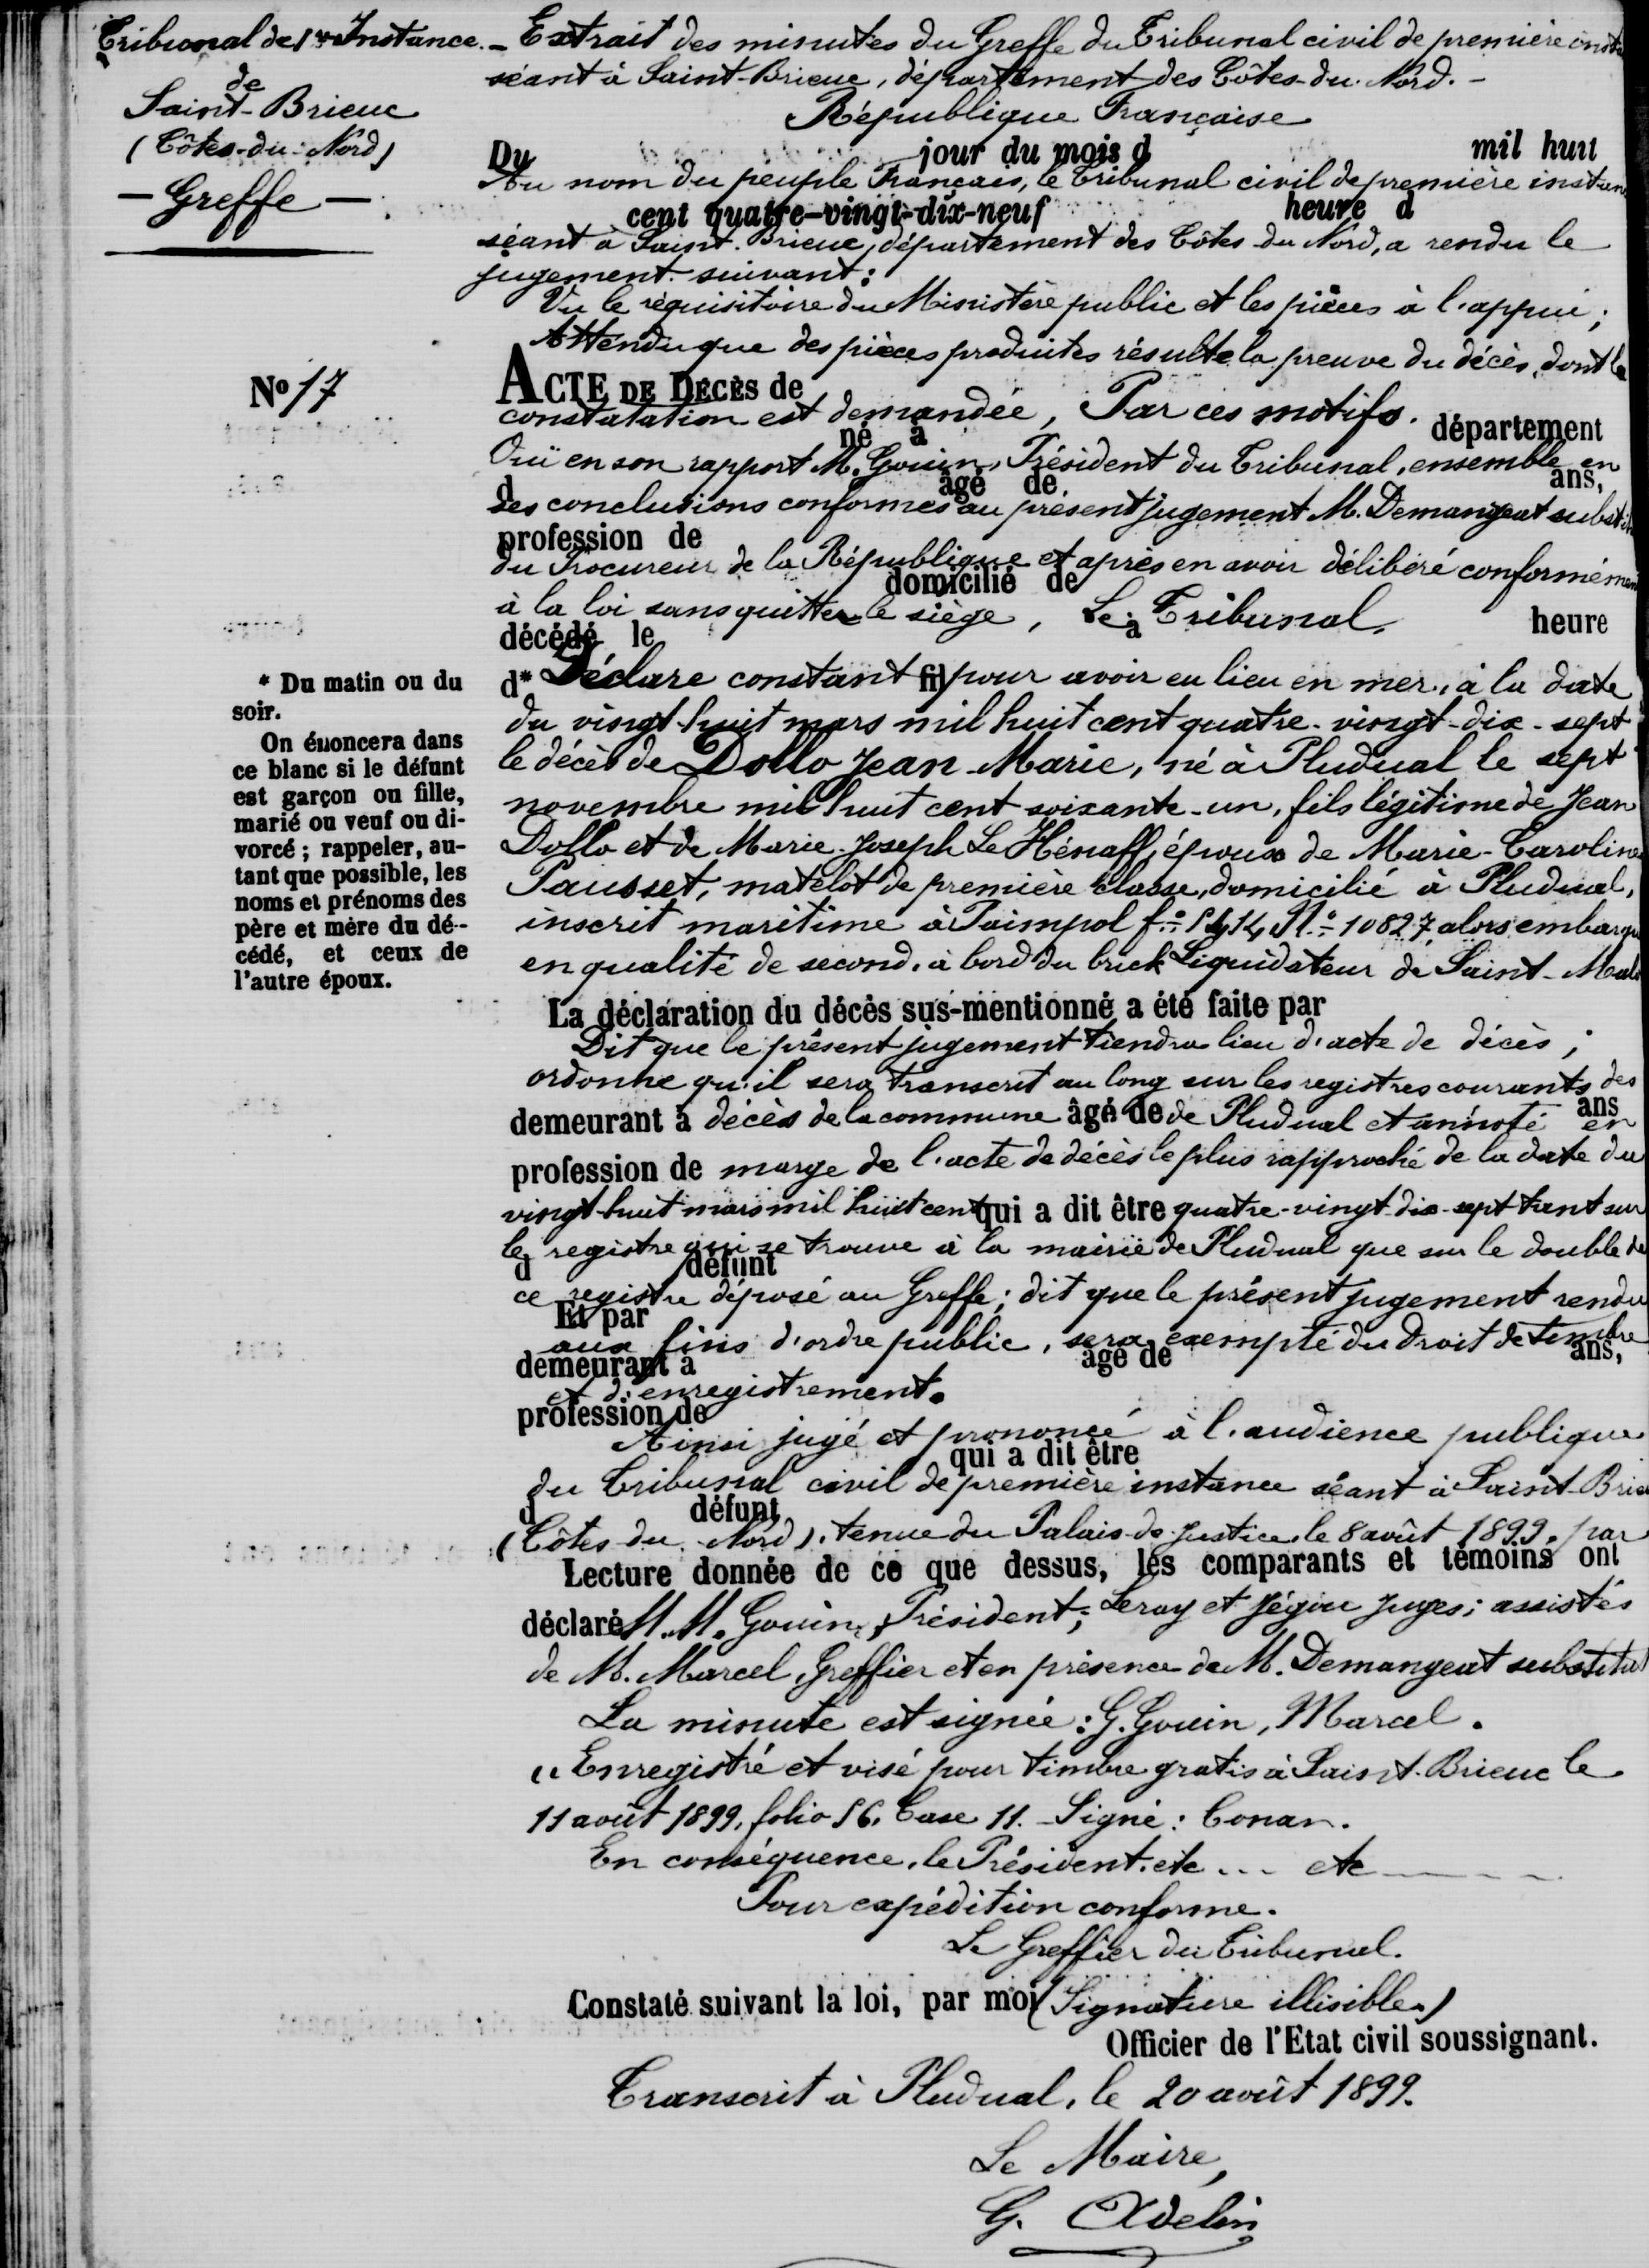 Tribunal de 1re Instance.
de
Saint-Brieuc
(Côtes-du-Nord)
— Greffe —
No 17
* Du matin ou du
soir.
On énoncera dans
ce blanc si le défunt
est garçon ou fille,
marié ou veuf ou di-
vorcé ; rappeler, au-
tant que possible, les
noms et prénoms des
père et mère du dé-
cédé, et ceux de
l'autre époux.
- Extrait des minutes du Greffe du Tribunal civil de première inst
séant à Saint-Brieuc, département des Côtes-du-Nord. -
République Française
Du jour du mois d mil huit
Au nom du peuple Français, le Tribunal civil de première instan
cent quatre-vingt-dix-neuf heure d
séant à Saint-Brieuc, département des Côtes du Nord, a rendu le
jugement suivant :
Vu le réquisitoire du Ministère public et les pièces à l'appui ;
Attendu que des pièces produites résulte la preuve du décès, dont la
ACTE DE DÉCÈS de
constatation est demandée, Par ces motifs.
né à département
Ouï en son rapport M. Gouin, Président du Tribunal, ensemble en
d âgé de ans,
ses conclusions conformes au présent jugement M. Demangeat substi
profession de
du Procureur de la République et après en avoir délibéré conformémen
domicilié de
à la loi sans quitter le siège, Le Tribunal,
décédé le à heure
d* fil
Déclare constant pour avoir eu lieu en mer, à la date
du vingt-huit mars mil huit cent quatre-vingt-dix-sept
le décès de Dollo Jean Marie, né à Pludual le sept
novembre mil huit cent soixante-un, fils légitime de Jean
Dollo et de Marie-Joseph Le Hénaff, époux de Marie-Caroline
Pausset, matelot de première classe, domicilié à Pludual,
inscrit maritime à Paimpol fo 5414 No 10827, alors embarqu
en qualité de second, à bord du brick Liquidateur de Saint-Malo
La déclaration du décès sus-mentionné a été faite par
Dit que le présent jugement tiendra lieu d'acte de décès ;
ordonne qu'il sera transcrit au long sur les registres courants des
demeurant à décès de la commune âgé de de Pludual et annoté ans en
profession de marge de l'acte de décès le plus rapproché de la date du
vingt-huit mars mil huit cent qui a dit être quatre-vingt-dix-sept tant sur
le registre qui se trouve à la mairie de Pludual que sur le double de
d défunt
ce registre déposé au Greffe ; dit que le présent jugement rendu
Et par
aux fins d'ordre public, sera exempté du droit de timbre
demeurant à âgé de ans,
et d'enregistrement.
profession de
Ainsi jugé et prononcé à l'audience publique
qui a dit être
du Tribunal civil de première instance séant à Saint-Brie
d défunt
(Côtes du Nord), tenue du Palais de Justice, le 8 août 1899, par
Lecture donnée de ce que dessus, les comparants et témoins ont
déclaré M.M. Gouin, Président ; Leray et Jégou Juges ; assistés
de M. Marcel Greffier et en présence de M. Demangeat substitut
La minute est signée : G. Gouin, Marcel.
" Enregistré et visé pour timbre gratis à Saint-Brieuc le
11 août 1899, folio 56, Case 11. - Signé : Conan.
En conséquence, le Président, etc ... etc
Pour expédition conforme.
Le Greffier du Tribunal.
Constaté suivant la loi, par moi (Signature illisible.)
Officier de l'Etat civil soussignant.
Transcrit à Pludual, le 20 août 1899.
Le Maire,
G. Adelin